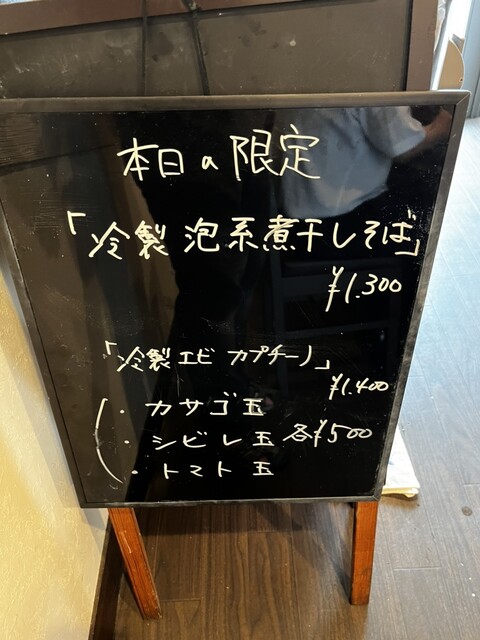 本日の限定
「冷製 泡系煮干しそば」
¥1.300
「冷製エビ カプチーノ」
¥1.400
・カサゴ玉
・シビレ玉 各¥500
・トマト玉